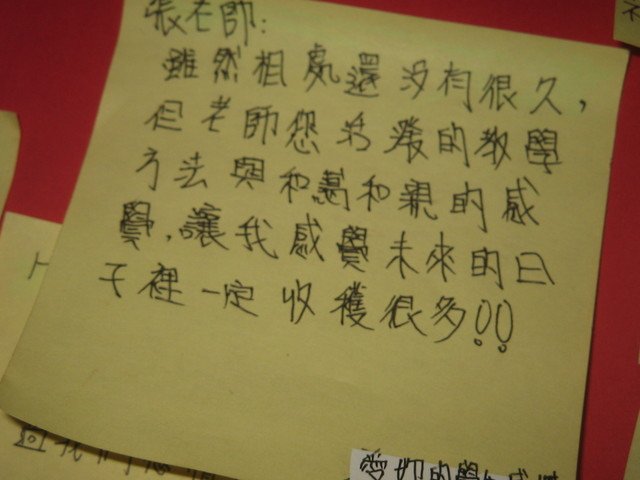 張老師:
雖然相處還沒有很久,
但老師您活潑的教學
方法與和藹和親的感
覺,讓我感覺未來的日
子裡一定收穫很多!!